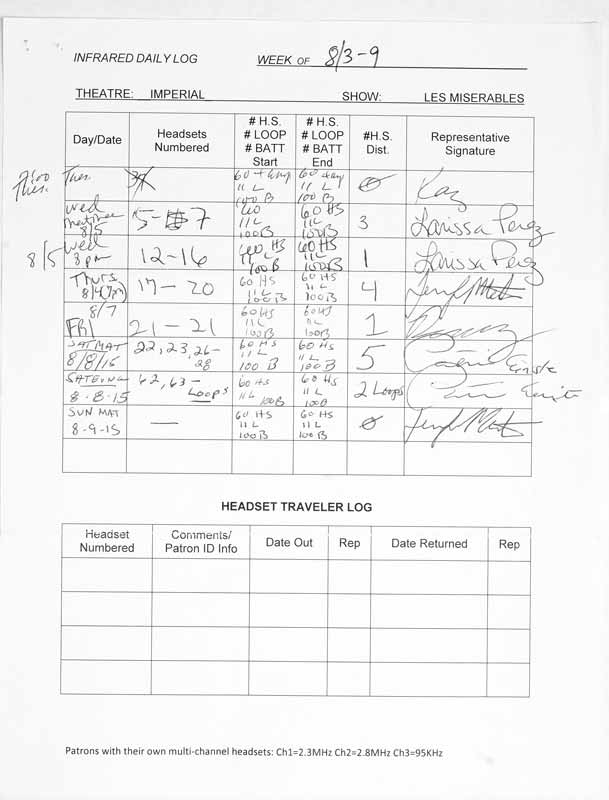 INFRARED DAILY LOG WEEK OF 8/3-9
THEATRE: IMPERIAL SHOW: LES MISERABLES
Day/Date Headsets Numbered # H.S. # LOOP # BATT Start # H.S. # LOOP # BATT End #H.S. Dist. Representative Signature
7:00 Tues. 60 11 L 100 B 60 11 L 100 B Ø Kay
wed matinee 8/5 5- 7 60 11 L 100B 60 HS 11 L 100B 3 Larissa Perez
8/5 wed 8 pm 12-16 60 HS 11 L 100 B 60 HS 11 L 100 B 1 Larissa Perez
Thurs 17-20 60 HS 11 L 100 B 60 HS 11 L 100 B 4
8/7 FRI 21-21 60 HS 11 L 100B 60 HS 11 L 100B 1
SAT MAT 8/8/15 22, 23, 26-28 60 HS 11 L 100 B 60 HS 11 L 100 B 5
SAT EVING 8-8-15 62, 63- LOOPS 60 HS 11 L 100 B 60 HS 11 L 100 B 2 Loops
SUN MAT 8-9-15 — 60 HS 11 L 100 B 60 HS 11 L 100 B Ø
HEADSET TRAVELER LOG
Headset Numbered Comments/ Patron ID Info Date Out Rep Date Returned Rep
Patrons with their own multi-channel headsets: Ch1=2.3MHz Ch2=2.8MHz Ch3=95KHz